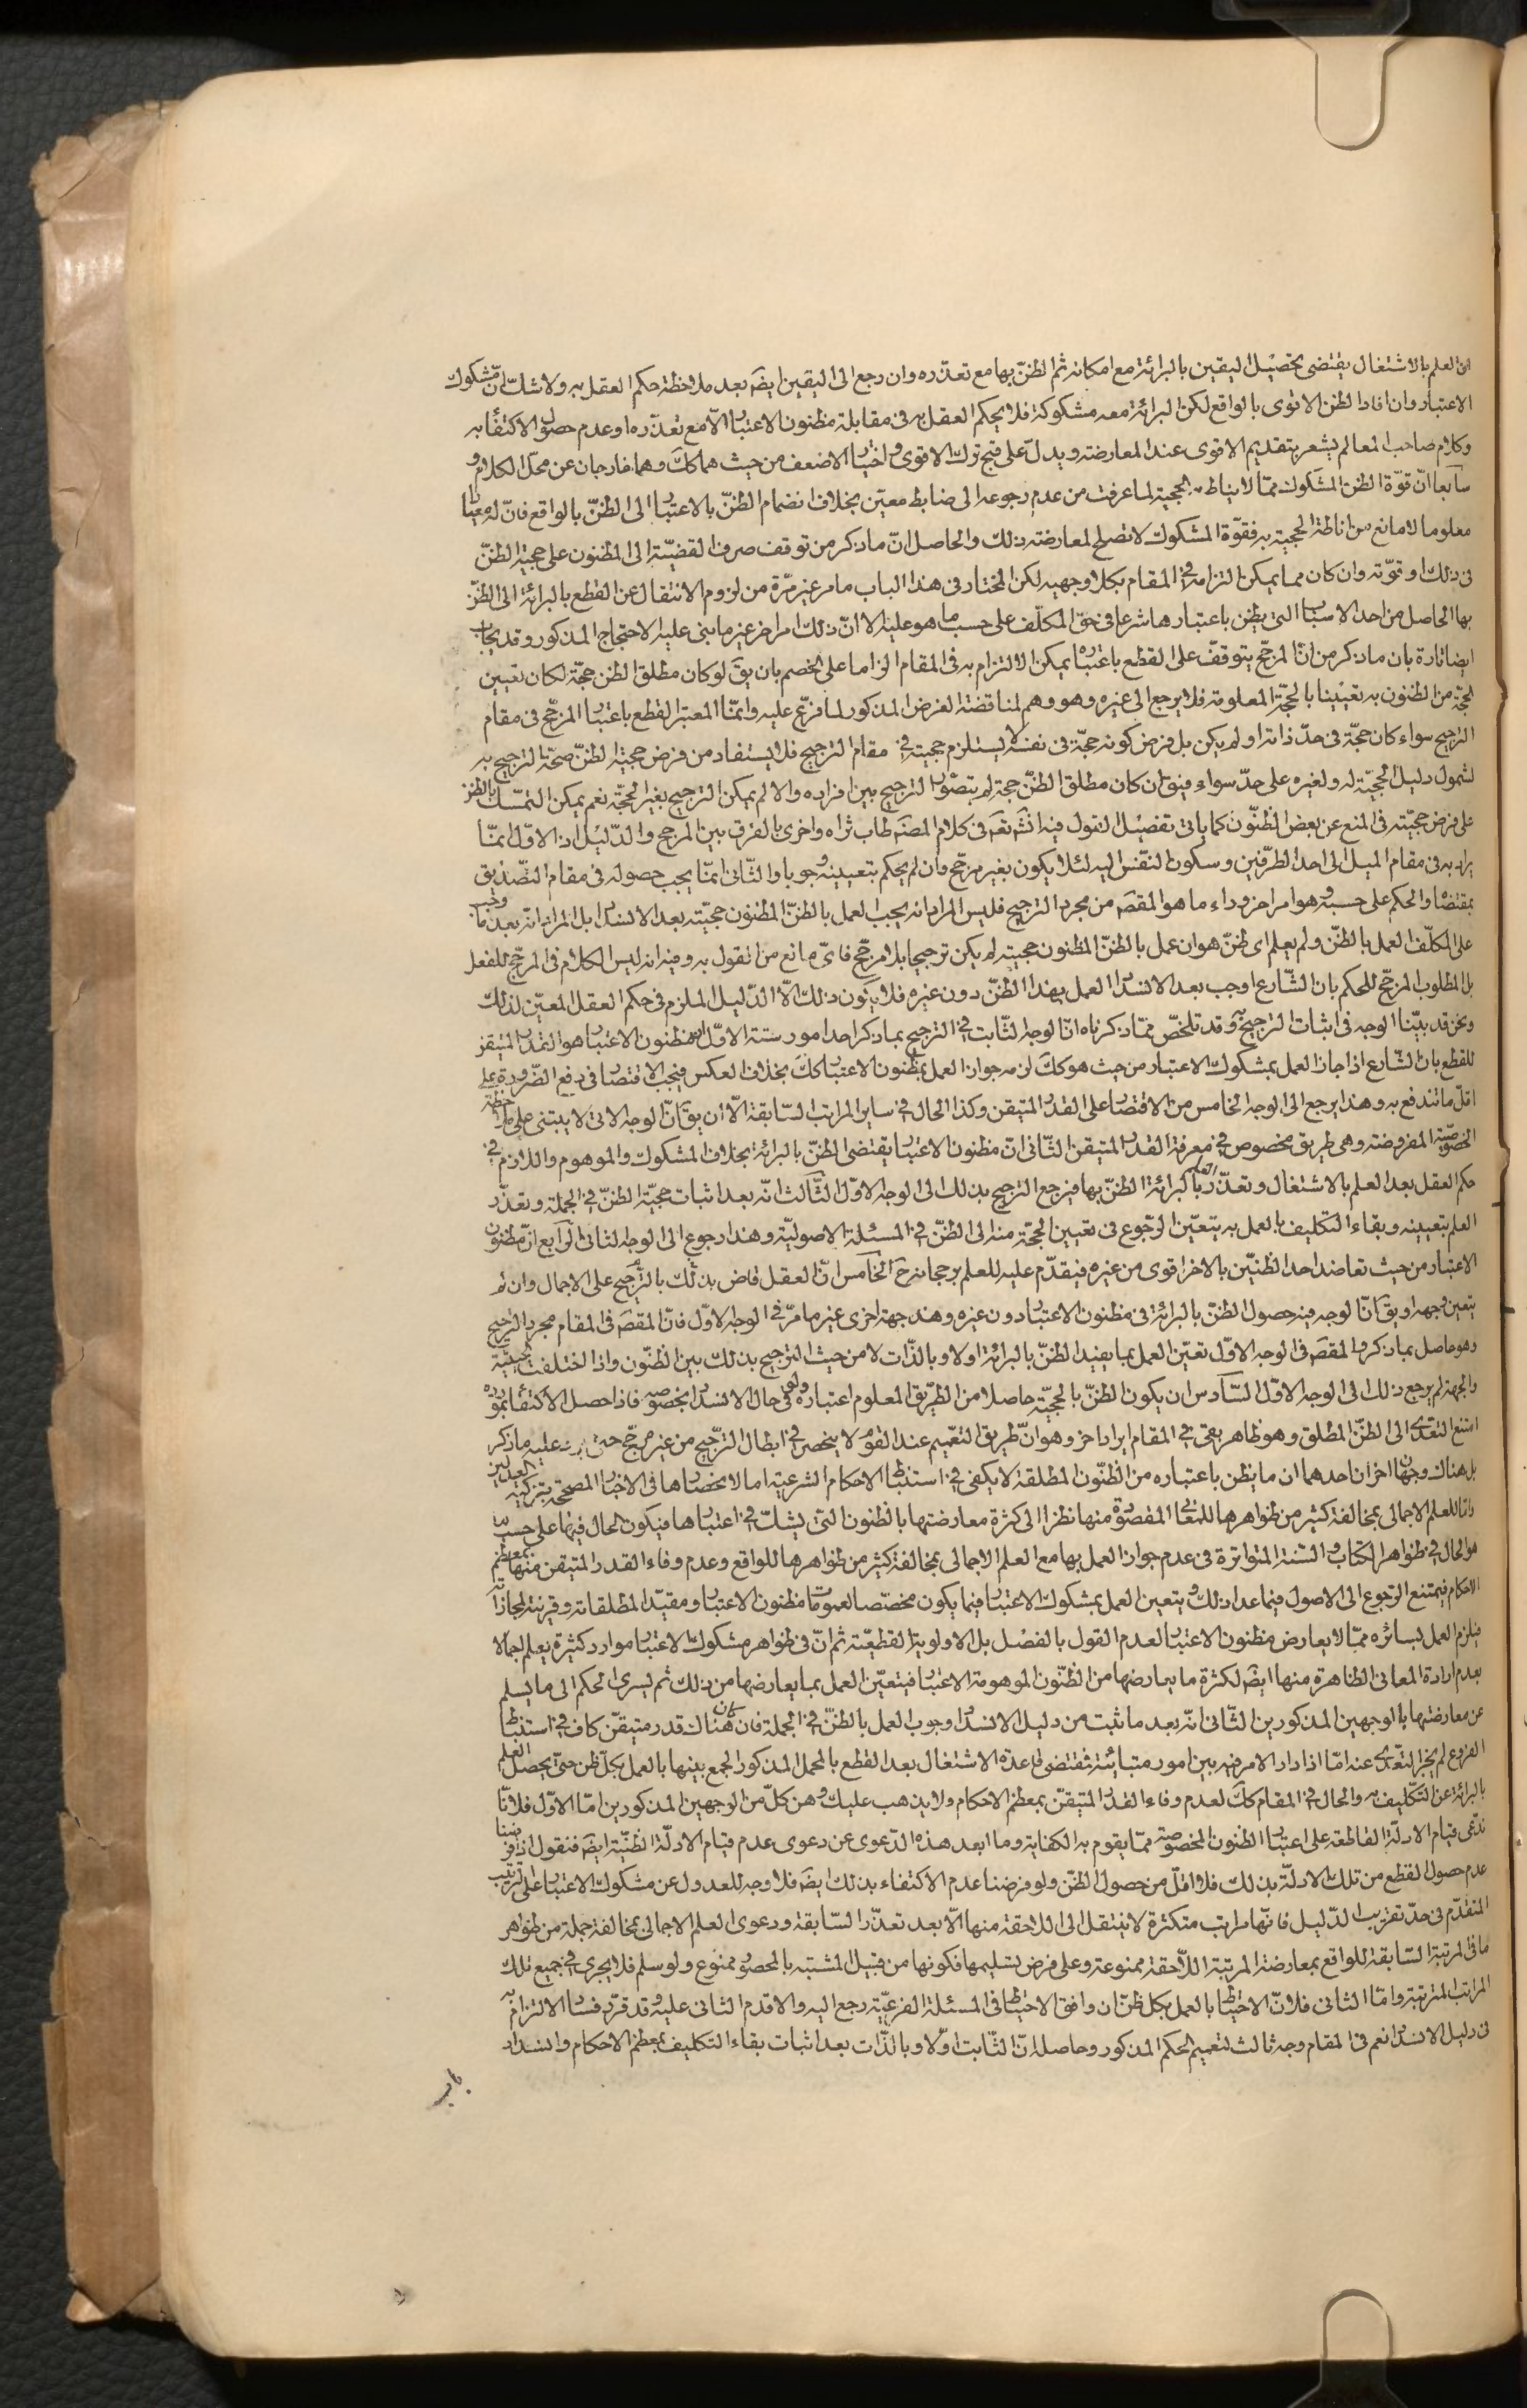 ان العلم بالاشتغال يقتضى تحصيل اليقين بالبرائة مع امكانه ثم الظنّ بها مع تعذّره وان رجع الى اليقين ايضَ بعد ملاحظة حكم العقل به ولا شكّ انّ مشكوك
الاعتبار وان افاد الظن الاقوى بالواقع لكن البرائة معه مشكوكة فلا يحكم العقل به فى مقابلة مظنون الاعتبار الّا مع تعذّره او عدم حصول الاكتفاء به
وكلام صاحب المعالم يشعر بتقديم الاقوى عند المعارضة ويدلّ على قبح ترك الاقوى واختيار الاضعف من حيث هما كك وهما خارجان عن محلّ الكلام و
سابعا انّ قوّة الظن المشكوك ممّا لا يناط به الحجية لما عرفت من عدم رجوعه الى ضابط معيّن بخلاف انضمام الظنّ بالاعتبار الى الظنّ بالواقع فانّ له معيارا
معلوما لا مانع من اناطة الحجية به فقوّة المشكوك لا تصلح لمعارضة ذلك والحاصل انّ ما ذكر من توقف صرف القضيّة الى المظنون على حجية الظنّ
فى ذلك او قوّته وان كان مما يمكن التزامه فى المقام بكلا وجهيه لكن المختار فى هذا الباب ما مر غير مرّة من لزوم الانتقال عن القطع بالبرائة الى الظنّ
بها الحاصل من احد الاسباب التى يظن باعتبارها شرعا فى حقّ المكلّف على حسب ما هو عليه الا انّ ذلك امر اخر غير ما بنى عليه الاحتجاج المذكور وقد يجاب
ايضا تارة بان ما ذكر من انّ المرجّح يتوقف على القطع باعتباره يمكن الالتزام به فى المقام الزاما على الخصم بان يقَ لو كان مطلق الظن حجّة لكان تعيين
الحجّة من الظنون به تعيينا بالحجّة المعلومة فلا يرجع الى غيره وهو وهم لمناقضة الفرض المذكور لما فرّع عليه وانمّا المعتبر القطع باعتبار المرجّح فى مقام
الترجيح سواء كان حجّة فى حدّ ذاته او لم يكن بل فرض كونه حجّة فى نفسه لا يستلزم حجيته فى مقام الترجيح فلا يستفاد من فرض حجية الظنّ صحة الترجيح به
لشمول دليل الحجيّة له ولغيره على حدّ سواء فيقَ ان كان مطلق الظنّ حجة لم يتصوّر الترجيح بين افراده والا لم يمكن الترجيح بغير الحجّة نعم يمكن التمسّك بالظن
على فرض حجيّته فى المنع عن بعض الظنّون كما ياتى تفصيل القول فيه انشَ تعَ فى كلام المصنّف طاب ثراه واخرى بالفرق بين المرجح والدّليل اذ الاوّل انمّا
يراد به فى مقام الميل الى احد الطرّفين وسكون النّفس اليه لئلا يكون بغير مرجّح وان لم يحكم بتعيينه وجوبا والثّانى انمّا يجب حصوله فى مقام التّصديق
بمقتضاه والحكم على حسبه وهو امر اخر وراء ما هو المقصَ من مجرد الترجيح فليس المراد انه يجب العمل بالظنّ المظنون حجيّته بعد الانسداد بل المراد انه بعد ما وجب
على المكلّف العمل بالظنّ ولم يعلم اى ظنّ هو ان عمل بالظنّ المظنون حجيته لم يكن ترجيحا بلا مرجّح فاىّ مانع من القول به وفيه انه ليس الكلام فى المرجّح للفعل
بل المطلوب المرجّح للحكم بان الشّارع اوجب بعد الانسداد العمل بهذا الظنّ دون غيره فلا يكون ذلك الّا الدّليل الملزم فى حكم العقل المعيّن لذلك
ونحن قد بيّنا الوجه فى اثبات الترجيح وقد تلخّص ممّا ذكرناه انّ الوجه الثّابت فى الترجيح بما ذكر احد امور ستة الاوّل ان مظنون الاعتبار هو القدر المتيقن
للقطع بان الشّارع اذا جاز العمل بمشكوك الاعتبار من حيث هو كك لزمه جواز العمل بمظنون الاعتبار كك بخلاف العكس فيجب الاقتصار فى دفع الضّرورة على
اقلّ ما تندفع به وهذا يرجع الى الوجه الخامس من الاقتصار على القدر المتيقن وكذا الحال فى ساير المراتب السّابقة الّا ان يقَ انّ الوجه الاتى لا يبتنى على ملاحظة
الخصوصّية المفروضة وهى طريق مخصوص فى معرفة القدر المتيقن الثّانى انّ مظنون الاعتبار يقتضى الظنّ بالبرائة بخلاف المشكوك والموهوم واللازم فى
حكم العقل بعد العلم بالاشتغال وتعذّر العلم بالبرائة الظنّ بها فيرجع الترجيح بذلك الى الوجه الاوّل الثّالث انّه بعد اثبات حجيّة الظنّ فى الجملة وتعذّر
العلم بتعيينه وبقاء التكليف بالعمل به يتعيّن الرّجوع فى تعيين الحجّة منه الى الظنّ فى المسئلة الاصوليّة وهذا رجوع الى الوجه الثانى الرّابع انّ مظنون
الاعتبار من حيث تعاضد احد الظنيّن بالاخر اقوى من غيره فيقدّم عليه للعلم برجحانه حَ الخامس انّ العقل قاض بذلك بالترّجيح على الاجمال وان لم
يتعين وجهه او يقَ انّ الوجه فيه حصول الظنّ بالبرائة فى مظنون الاعتبار دون غيره وهذه جهة اخرى غير ما مرّ فى الوجه الاوّل فانّ المقصَ فى المقام مجرد الترجيح
وهو حاصل بما ذكر والمقصَ فى الوجه الاوّل تعيّن العمل بما يفيد الظنّ بالبرائة اولا وبالذّات لا من حيث الترجيح بذلك بين الظنّون واذا اختلفت الحيثيّة
والجهة لم يرجع ذلك الى الوجه الاوّل السّادس ان يكون الظنّ بالحجيّة حاصلا من الطرّيق المعلوم اعتباره ولو فى حال الانسداد بخصوصه فاذا حصل الاكتفاء بمورده
امتنع التعدّى الى الظنّ المطلق وهو ظاهر بقى فى المقام ايراد اخر وهو انّ طريق التعّميم عند القوم لا ينحصر فى ابطال الترّجيح من غير مرجّح حتى يرد عليه ما ذكر
بل هناك وجهان اخران احدهما ان ما يظن باعتباره من الظنّون المطلقة لا يكفى فى استنباط الاحكام الشرعية اما لانحصارها فى الاخبار المصححة بتزكية العدلين
وامّا للعلم الاجمالى بمخالفة كثير من ظواهرها للمعانى المقصودة منها نظرا الى كثرة معارضتها بالظنون التى يشكّ فى اعتبارها فيكون الحال فيها على حسب ما
هو الحال فى ظواهر الكتاب والسّنة المتواترة فى عدم جواز العمل بها مع العلم الاجمالى بمخالفة كثير من ظواهرها للواقع وعدم وفاء القدر المتيقن منها بمعظم
الاحكام فيمتنع الرّجوع الى الاصول فيما عدا ذلك ويتعين العمل بمشكوك الاعتبار فيما يكون مخصّصا لعمومات مظنون الاعتبار ومقيّد المطلقاته وقرينة لمجازاته
فيلزم العمل بسائره ممّا لا يعارض مظنون الاعتبار لعدم القول بالفصل بل الاولوية القطعيّة ثم انّ فى ظواهر مشكوك الاعتبار موارد كثيرة يعلم اجمالا
بعدم ارادة المعانى الظاهرة منها ايضَ لكثرة ما يعارضها من الظنّون الموهومة الاعتبار فيتعيّن العمل بما يعارضها من ذلك ثم يسرى الحكم الى ما يسلم
عن معارضتها بالوجهين المذكورين الثّانى انّه بعد ما ثبت من دليل الانسداد وجوب العمل بالظنّ فى الجملة فان كان هناك قدر متيقّن كاف فى استنباط
الفروع لم يجز التعّدى عنه امّا اذا دار الامر فيه بين امور متباينة فمقتضى قاعدة الاشتغال بعد القطع بالمحمل المذكور الجمع بينها بالعمل بكلّ ظن حتى يحصل العلم
بالبرائة عن التكّليف به والحال فى المقام كك لعدم وفاء القدر المتيقّن بمعظم الاحكام ولا يذهب عليك وهن كلّ من الوجهين المذكورين امّا الاوّل فلانّا
ندّعى قيام الادلة القاطعة على اعتبار الظنون المخصوصة ممّا يقوم به الكفاية وما ابعد هذه الدّعوى عن دعوى عدم قيام الادلّة الظنيّة ايضَ فنقول اذا فرضنا
عدم حصول القطع من تلك الادلّة بذلك فلا اقلّ من حصول الظنّ ولو فرضنا عدم الاكتفاء بذلك ايضَ فلا وجه للعدول عن مشكوك الاعتبار على ترتيب
المتقدّم فى حدّ تقريب الدّليل فانّها مراتب متكثرة لا ينتقل الى اللاحقة منها الّا بعد تعذّر السّابقة ودعوى العلم الاجمالى بمخالفة جملة من ظواهر
ما فى المرتبة السّابقة للواقع بمعارضة المرتبة اللّاحقة ممنوعة وعلى فرض تسليمها فكونها من قبيل المشتبه بالمحصور ممنوع ولو سلم فلا يجرى فى جميع تلك
المراتب المترتبة وامّا الثانى فلانّ الاحتياط بالعمل بكل ظنّ ان وافق الاحتياط فى المسئلة الفرعيّة رجع اليه والا قدم الثانى عليه وقد قرّر فساد الالتزام به
فى دليل الانسداد نعم فى المقام وجه ثالث لتعميم الحكم المذكور وحاصله انّ الثّابت اوّلا وبالذّات بعد اثبات بقاء التكليف بمعظم الاحكام وانسداد
باب